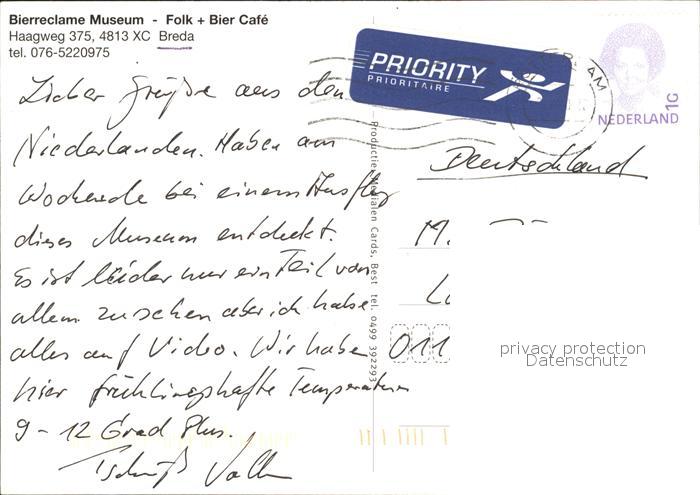 Bierreclame Museum - Folk + Bier Café
Haagweg 375, 4813 XC Breda
tel. 076-5220975
PRIORITY
PRIORITAIRE
NEDERLAND
1G
Grüße aus den
Niederlanden. Haben am
Wochende bei einem Ausflug
dieses Museum entdeckt.
Es ist leider nur ein Teil von
allem zu sehen aber ich habe
alles auf Video. Wir haben
hier frühlingshafte Temperaturen
9 - 12 Grad Plus.
Tschüß
Productie: Medialen Cards, Best tel. 0499 392293
Deutschland
M.
L
011
privacy protection
Datenschutz